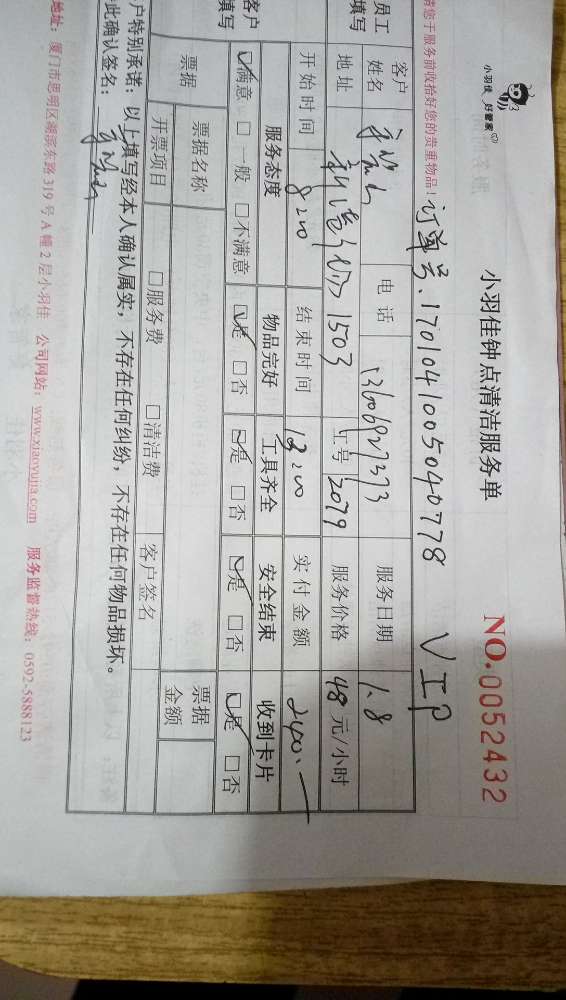 小羽佳 好管家
小羽佳钟点清洁服务单
NO.0052432
请您于服务前收拾好您的贵重物品！ 订单号.1701041005040778 VIP
员工填写 客户姓名 电话 13606927373 服务日期 1.8
地址 1503 工号 2079 服务价格 48元/小时
开始时间 8:00 结束时间 13:00 实付金额 240.一
客户填写 服务态度 物品完好 工具齐全 安全结束 收到卡片
☑满意 □一般 □不满意 ☑是 □否 ☑是 □否 ☑是 □否 ☑是 □否
票据 票据名称 票据金额
开票项目 □服务费 □清洁费 客户签名
户特别承诺：以上填写经本人确认属实，不存在任何纠纷，不存在任何物品损坏。
此确认签名：
地址：厦门市思明区湖滨东路319号A幢2层小羽佳 公司网站：www.xiaoyujia.com 服务监督热线：0592-5888123